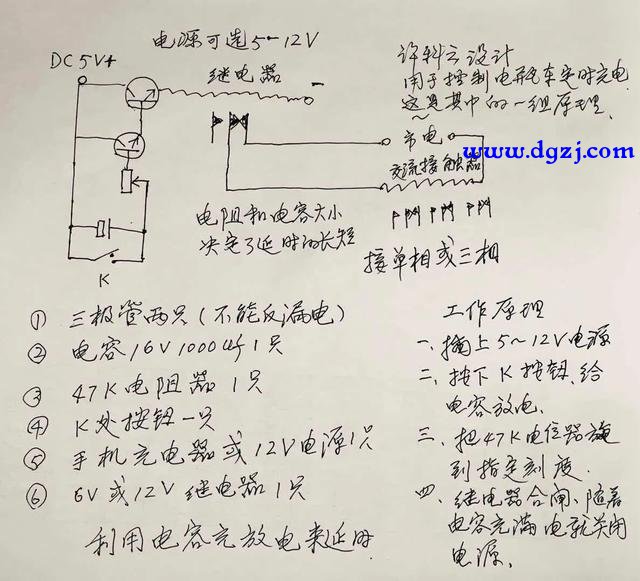 电源可选5-12V
DC5V+
继电器
-
许科云设计
用于控制电开毛车定时充电
这是其中的一组原理.
市电
www.dgzj.com
交流接触器
电阻和电容大小
决定了延时的长短
接单相或三相
K
① 三极管两只(不能反漏电)
② 电容16V1000uf1只
③ 47K电阻器1只
④ K处按钮一只
⑤ 手机充电器或12V电源1只
⑥ 6V或12V继电器1只
利用电容充放电来延时
工作原理
一、插上5~12V电源
二、按下K按钮、给
电容放电、
三、把47K电位器旋
到指定刻度.
四、继电器合闸、随着
电容充满电就关闭
电源、